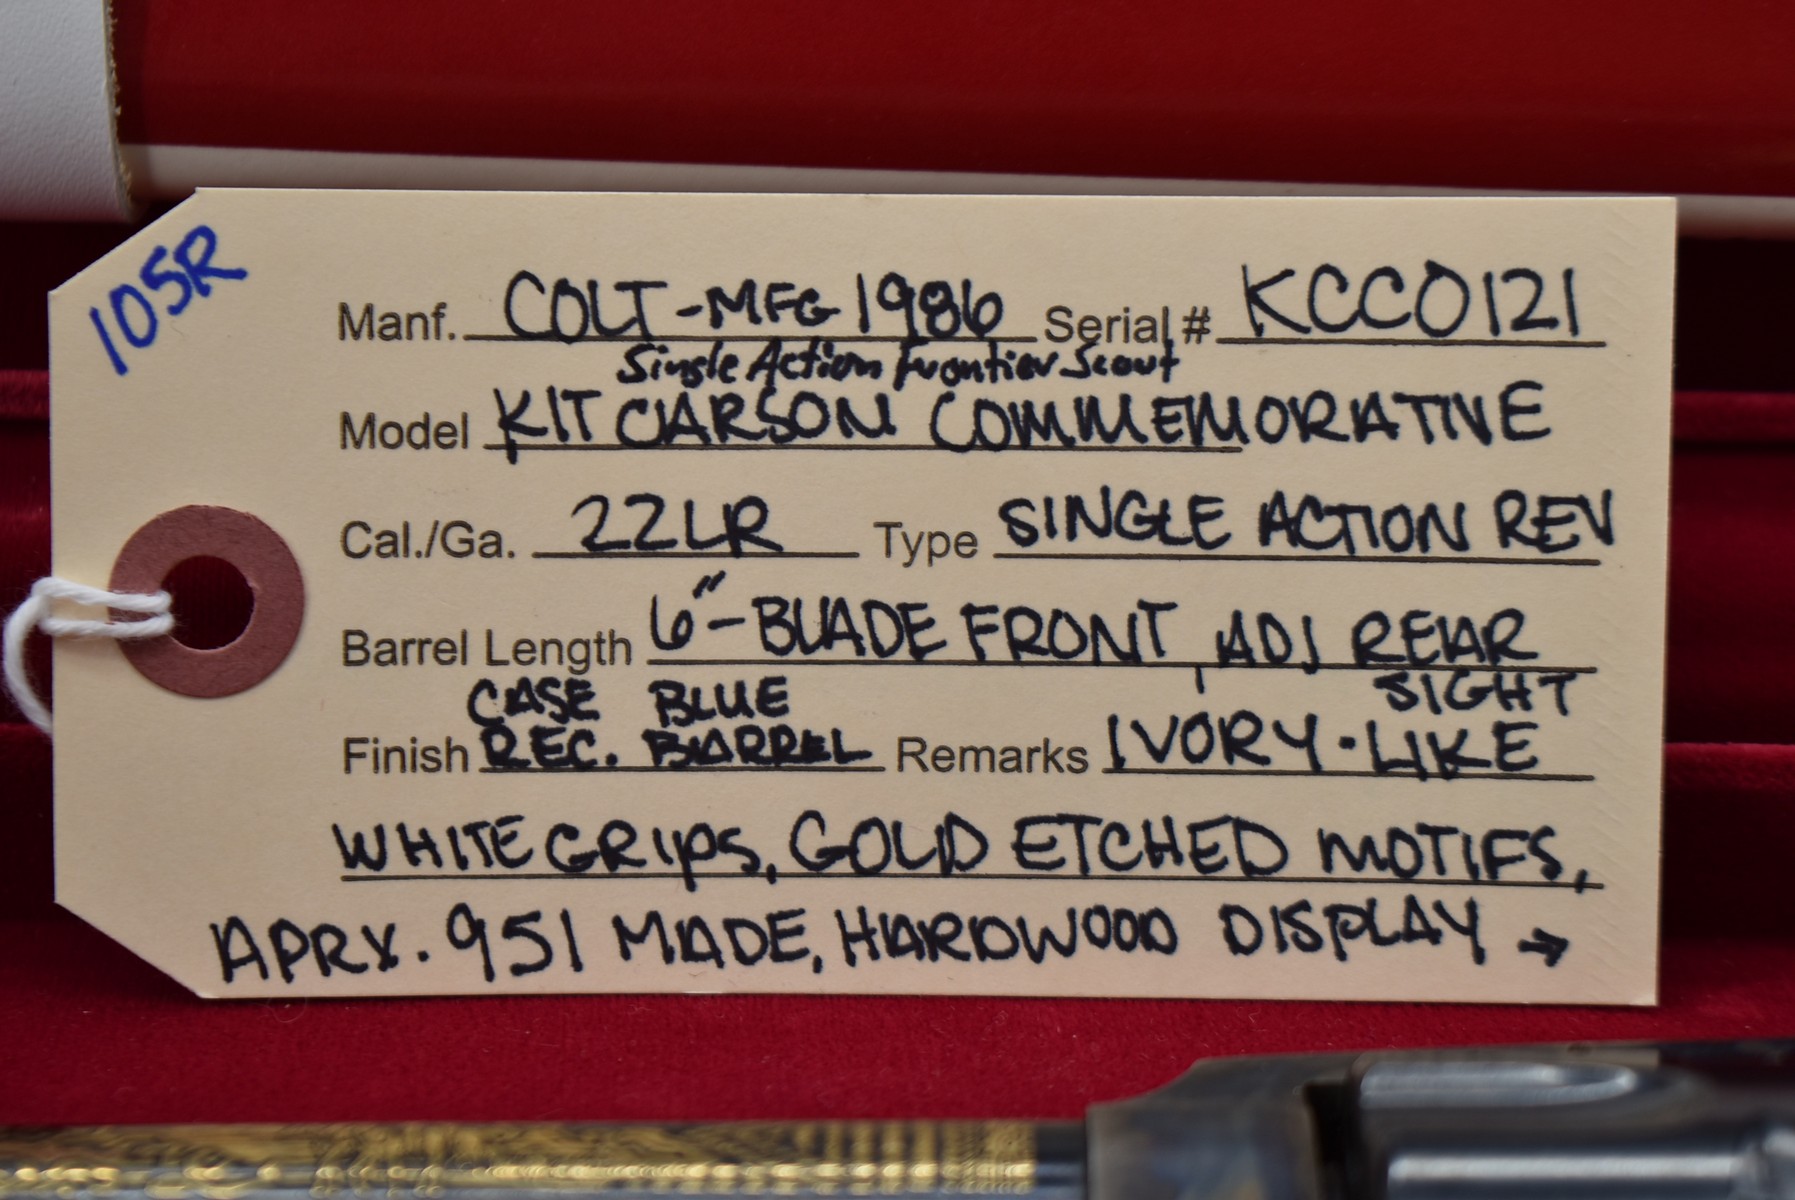 105R
Manf. COLT-MFG 1986 Serial # KCC0121
Single Action Frontier Scout
Model KIT CARSON COMMEMORATIVE
Cal./Ga. 22LR Type SINGLE ACTION REV
Barrel Length 6"-BLADE FRONT, ADJ REAR
CASE BLUE SIGHT
Finish REC. BARREL Remarks IVORY-LIKE
WHITE GRIPS, GOLD ETCHED MOTIFS,
APRX. 951 MADE, HARDWOOD DISPLAY →